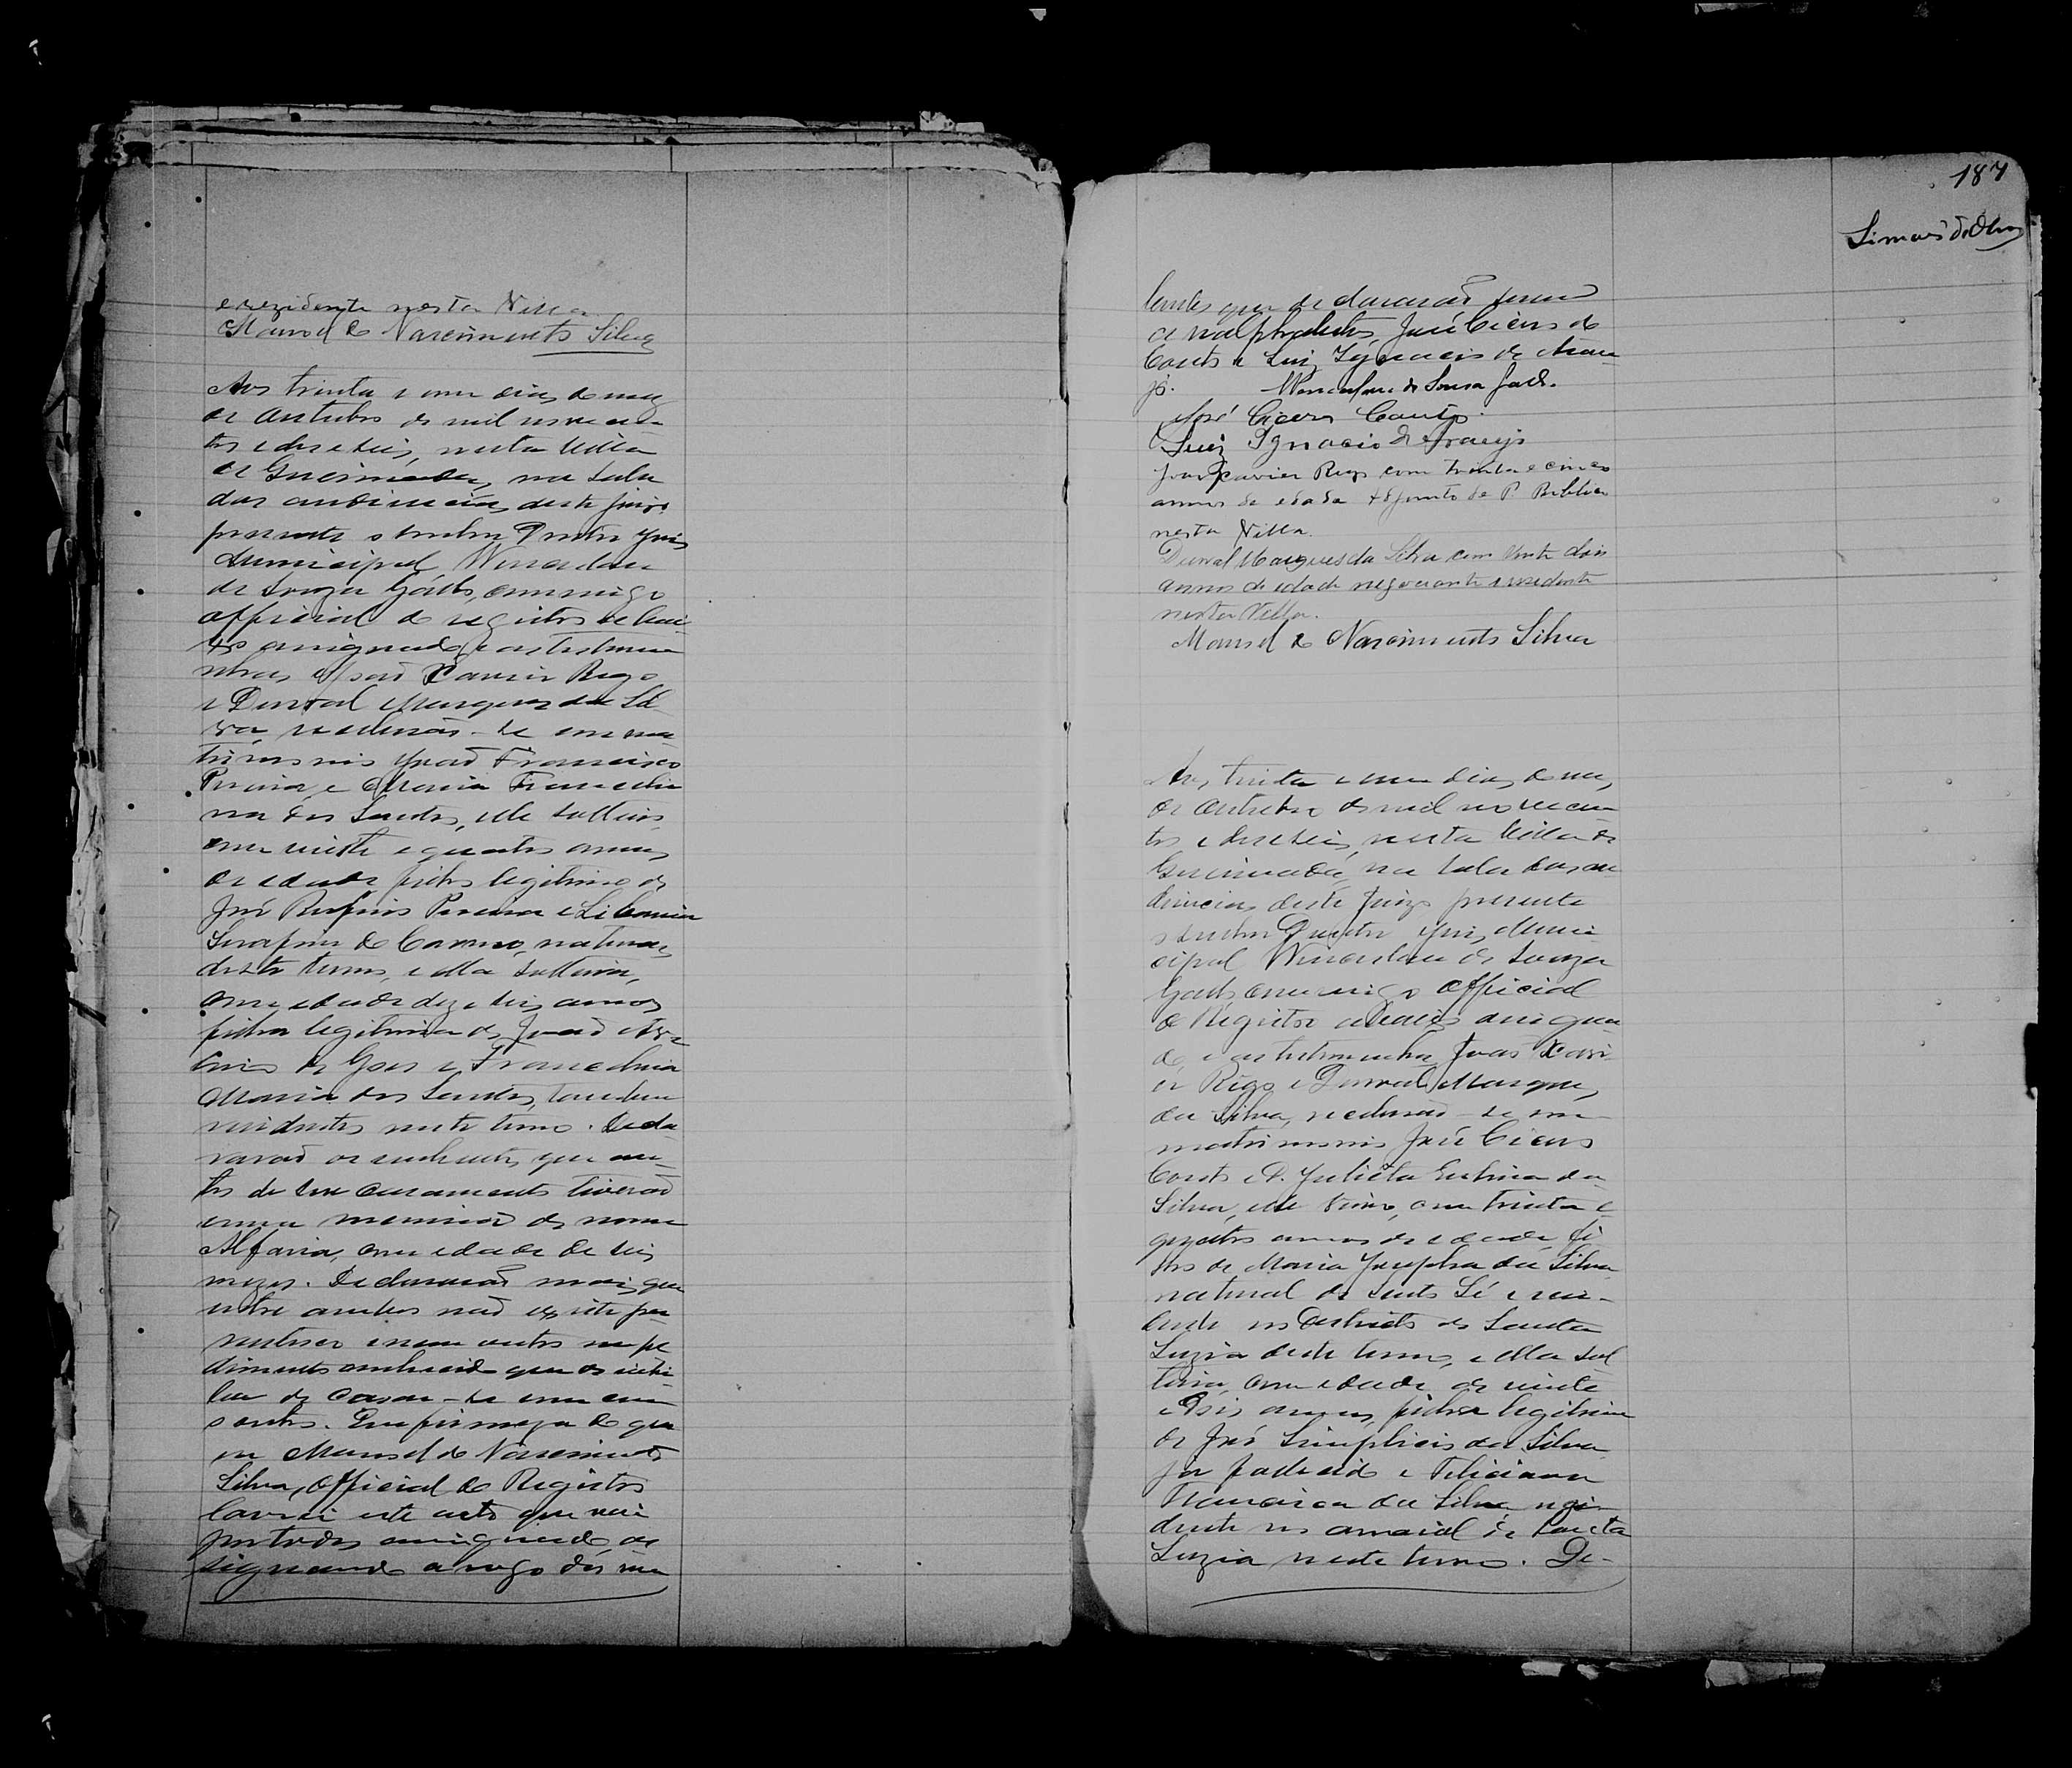 e rezidente nesta Villa.
Manoel do Nascimento Silva
Aos trinta e um dias do mez
de Outubro de mil novecen-
tos e dezeseis, nesta Villa
de Queimadas, na sala
das audiencias deste juizo
presente o senhor Pretor Juiz
Municipal Wenceslau
de Souza Góes, commigo
official do registro
assignado e as testemu
nhas João Xavier Rego
e Durval Marques da Sil
va, receberão-se em ma
trimonio João Francisco
Pereira e Maria Francelin
na dos Santos, elle solteiro,
com vinte e quatro annos
de edade, filho legitimo de
José Rufino Pereira e Libania
Serafina do Carmo, naturaes
deste termo, e ella solteira,
com edade dezeseis annos
filha legitima de João
de Goes e Francelina
Maria dos Santos, tambem
residentes neste termo. Decla
rarão os nubentes, que an-
tes de seu casamento tiverão
uma menina de nome
Alfaria, com edade de seis
mezes. Declararão mais que
entre ambos não existe pa
rentesco e nem outro impe
dimento conhecido que os inhi
ba de casar-se um com
o outro. Em firmeza do que
eu Manoel do Nascimento
Silva, Official do Registro
lavrei este acto que vai
por todos assignado,
signando a rogo dos nu
187
Simões d'Olivª
bentes que declararão serem
analphabetos, José Cicero do
Couto e Luiz Ignacio de Arau
jo. Wenceslau de Sousa Goes.
José Cicero Couto.
Luiz Ignacio de Araujo
João Xavier Rego com trinta e cinco
annos de edade Adjunto de P. Publico
nesta Villa.
Durval Marques da Silva com vinte dois
annos de edade negociante e residente
nesta Villa.
Manoel do Nascimento Silva
Aos trinta e um dias do mez
de Outubro de mil novecen
tos e dezeseis, nesta Villa de
Queimadas, na sala das au
diencias deste Juizo presente
o senhor Pretor Juiz Muni
cipal Wenceslau de Souza
Goes, commigo Official
do Registro assigna
do, e as testemunhas João Xavi
er Rego e Durval Marques
da Silva, receberão-se em
matrimonio José Cicero
Couto e D. Julieta da
Silva, elle viuvo, com trinta e
quatro annos de edade, fi
lho de Maria Josepha da Silva
natural de Sento Sé e resi-
dente no Districto de Santa
Luzia deste termo, e ella sol
teira, com edade de vinte
e dois annos, filha legitima
de José Simplicio da Silva
já fallecido e Feliciana
da Silva rezi-
dente no arraial de Santa
Luzia neste termo. De-